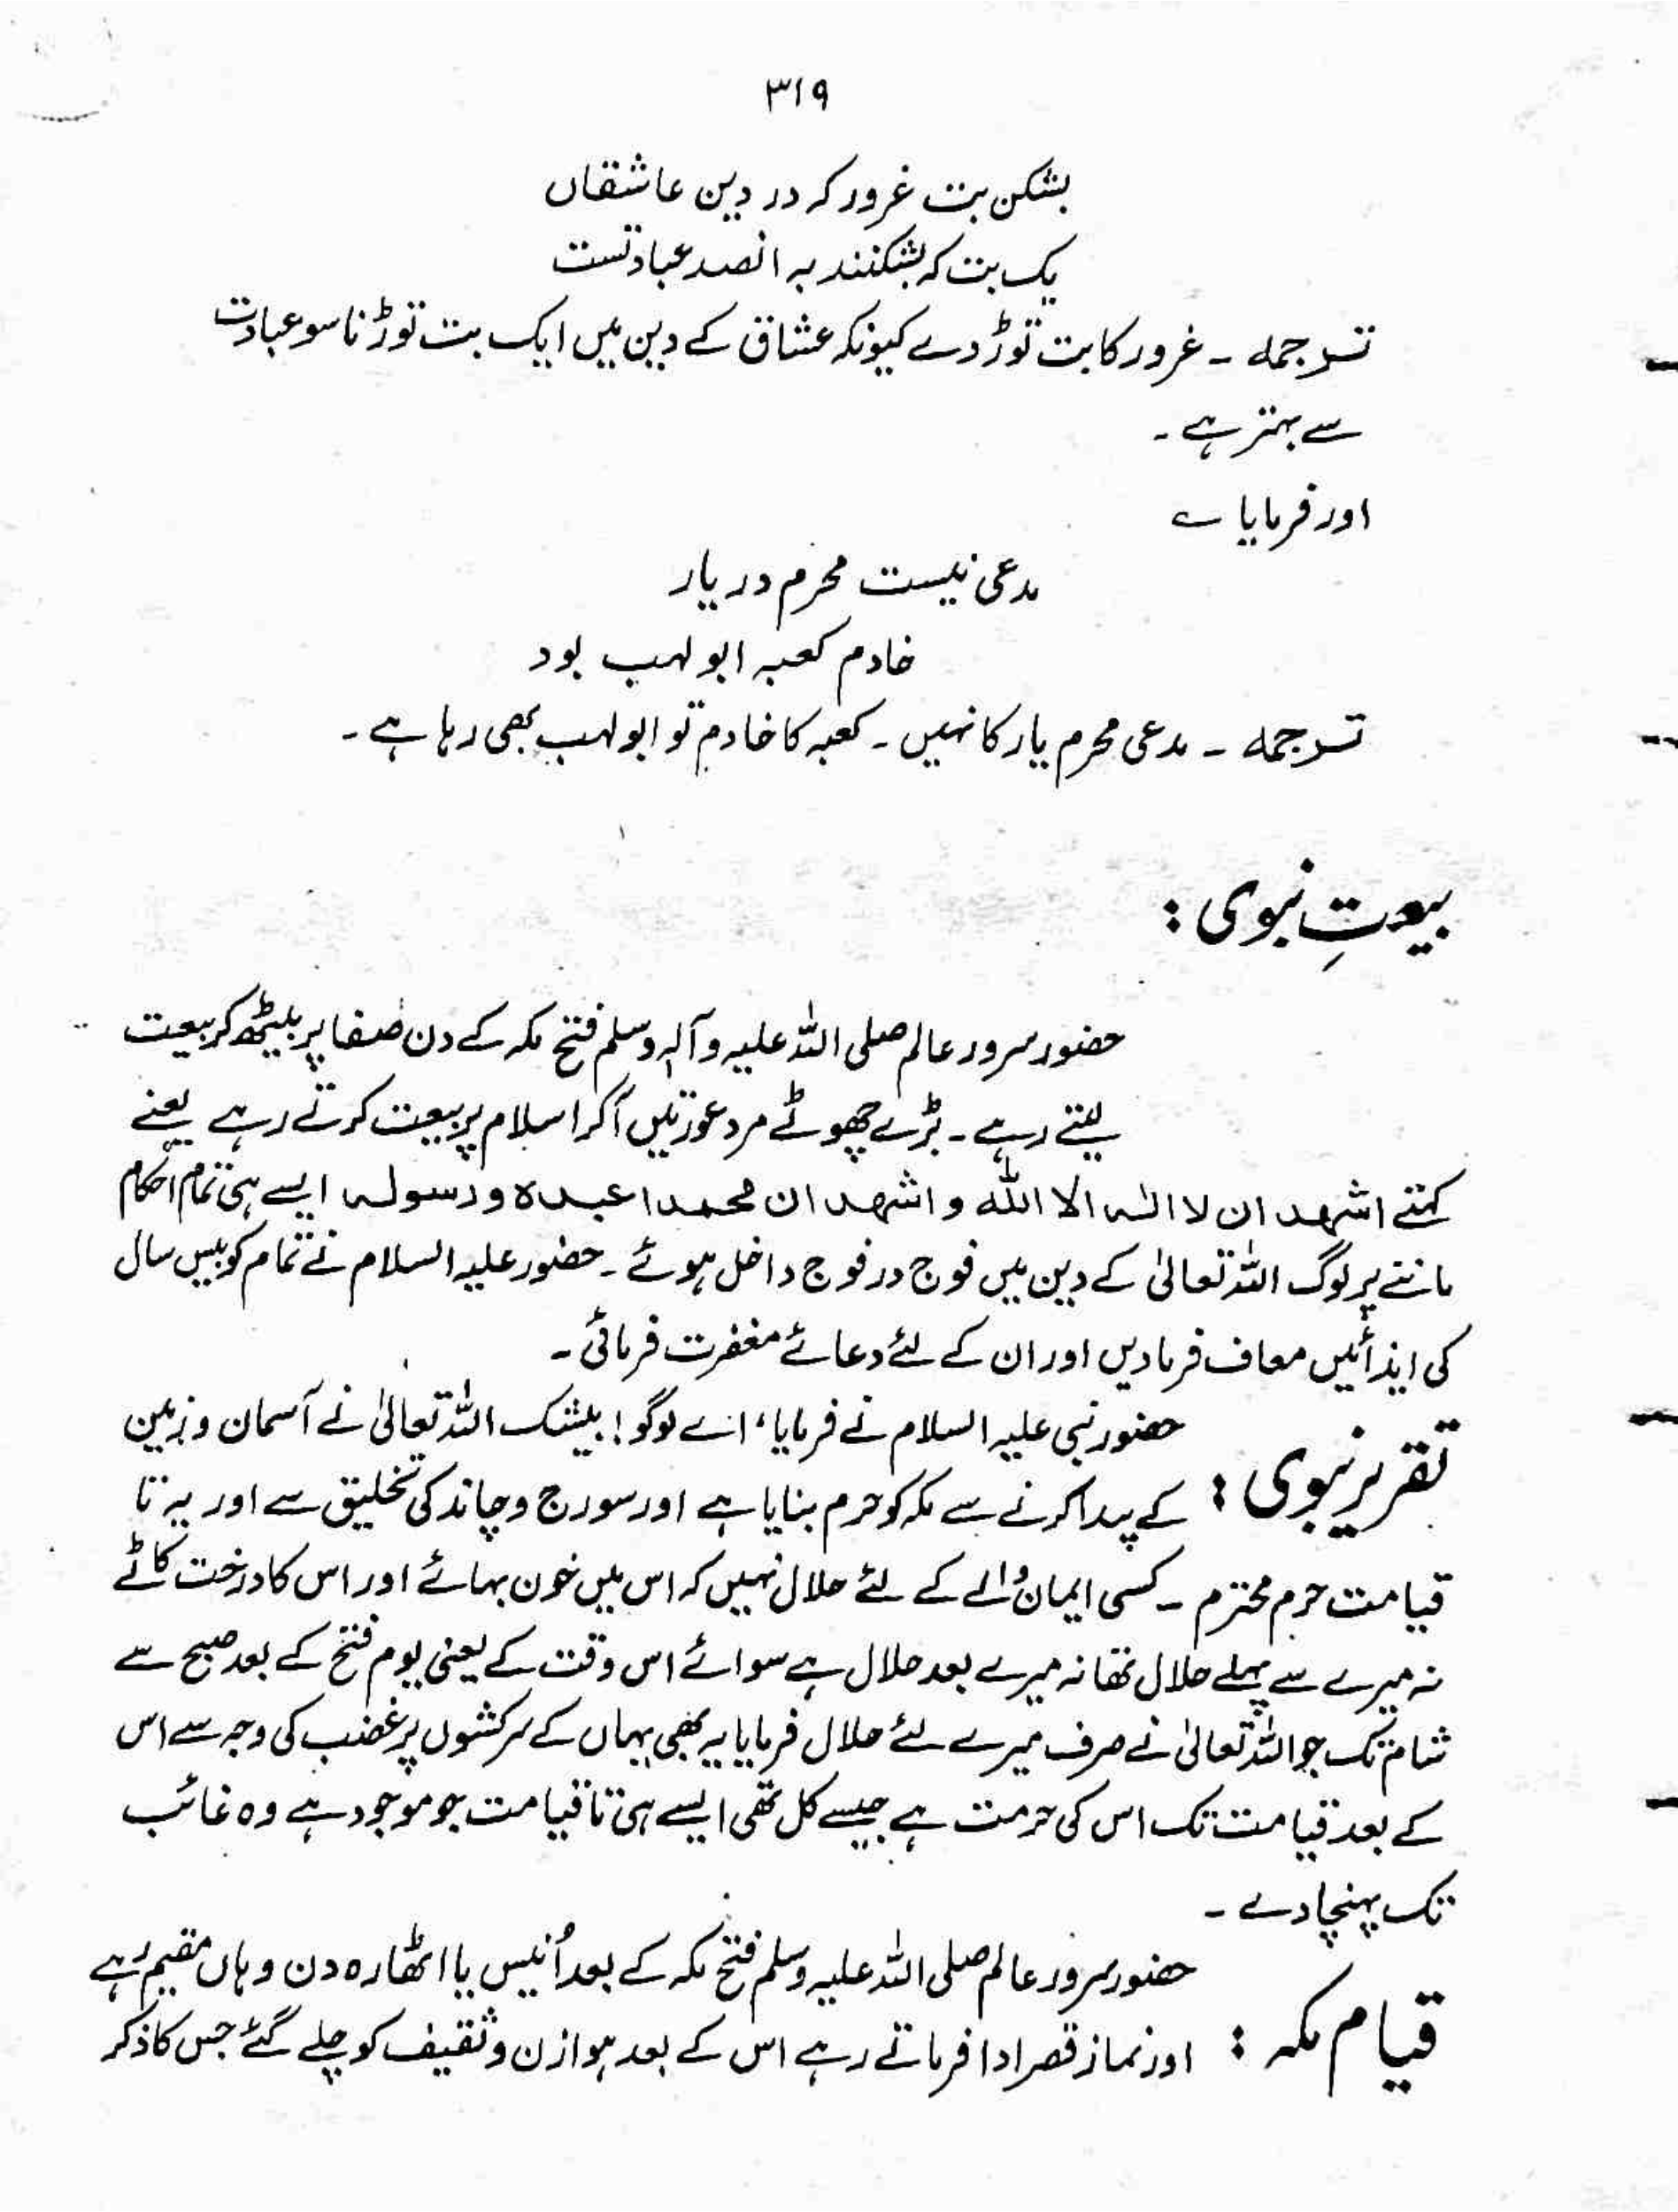 ۳۱۹
بشکن بت غرور کہ در دین عاشقاں
یک بت کہ بشکنند بہ انصد عبادتست
ترجمہ ۔ غرور کا بت توڑ دے کیونکہ عشاق کے دین میں ایک بت توڑنا سو عبادت
سے بہتر ہے ۔
اور فرمایا ے
مدعی نیست محرم در یار
خادم کعبہ ابو لہب بود
ترجمہ ۔ مدعی محرم یار کا نہیں ۔ کعبہ کا خادم تو ابو لہب بھی رہا ہے ۔
بیعتِ نبوی :
حضور سرور عالم صلی اللہ علیہ وآلہ وسلم فتح مکہ کے دن صفا پر بیٹھ کر بیعت
لیتے رہے ۔ بڑے چھوٹے مرد عورتیں آکر اسلام پر بیعت کرتے رہے یعنے
کہتے اشہد ان لا الٰہ الا اللہ و اشھد ان محمدا عبدہ و رسولہ ایسے ہی تمام احکام
ماننے پر لوگ اللہ تعالیٰ کے دین میں فوج در فوج داخل ہوئے ۔ حضور علیہ السلام نے تمام کو بیس سال
کی ایذائیں معاف فرمادیں اور ان کے لئے دعائے مغفرت فرمائی ۔
حضور نبی علیہ السلام نے فرمایا، اے لوگو ! بیشک اللہ تعالیٰ نے آسمان و زمین
تقریر نبوی : کے پیدا کرنے سے مکہ کو حرم بنایا ہے اور سورج و چاند کی تخلیق سے اور یہ تا
قیامت حرم محترم ۔ کسی ایمان والے کے لئے حلال نہیں کہ اس میں خون بہائے اور اس کا درخت کاٹے
نہ میرے سے پہلے حلال تھا نہ میرے بعد حلال ہے سوائے اس وقت کے یعنی یوم فتح کے بعد صبح سے
شام تک جو اللہ تعالیٰ نے صرف میرے لئے حلال فرمایا یہ بھی یہاں کے سرکشوں پر غضب کی وجہ سے اس
کے بعد قیامت تک اس کی حرمت ہے جیسے کل تھی ایسے ہی تا قیامت جو موجود ہے وہ غائب
تک پہنچا دے ۔
حضور سرور عالم صلی اللہ علیہ وسلم فتح مکہ کے بعد اُنیس یا اٹھارہ دن وہاں مقیم رہے
قیام مکہ : اور نماز قصر ادا فرماتے رہے اس کے بعد ہوازن و ثقیف کو چلے گئے جس کا ذکر